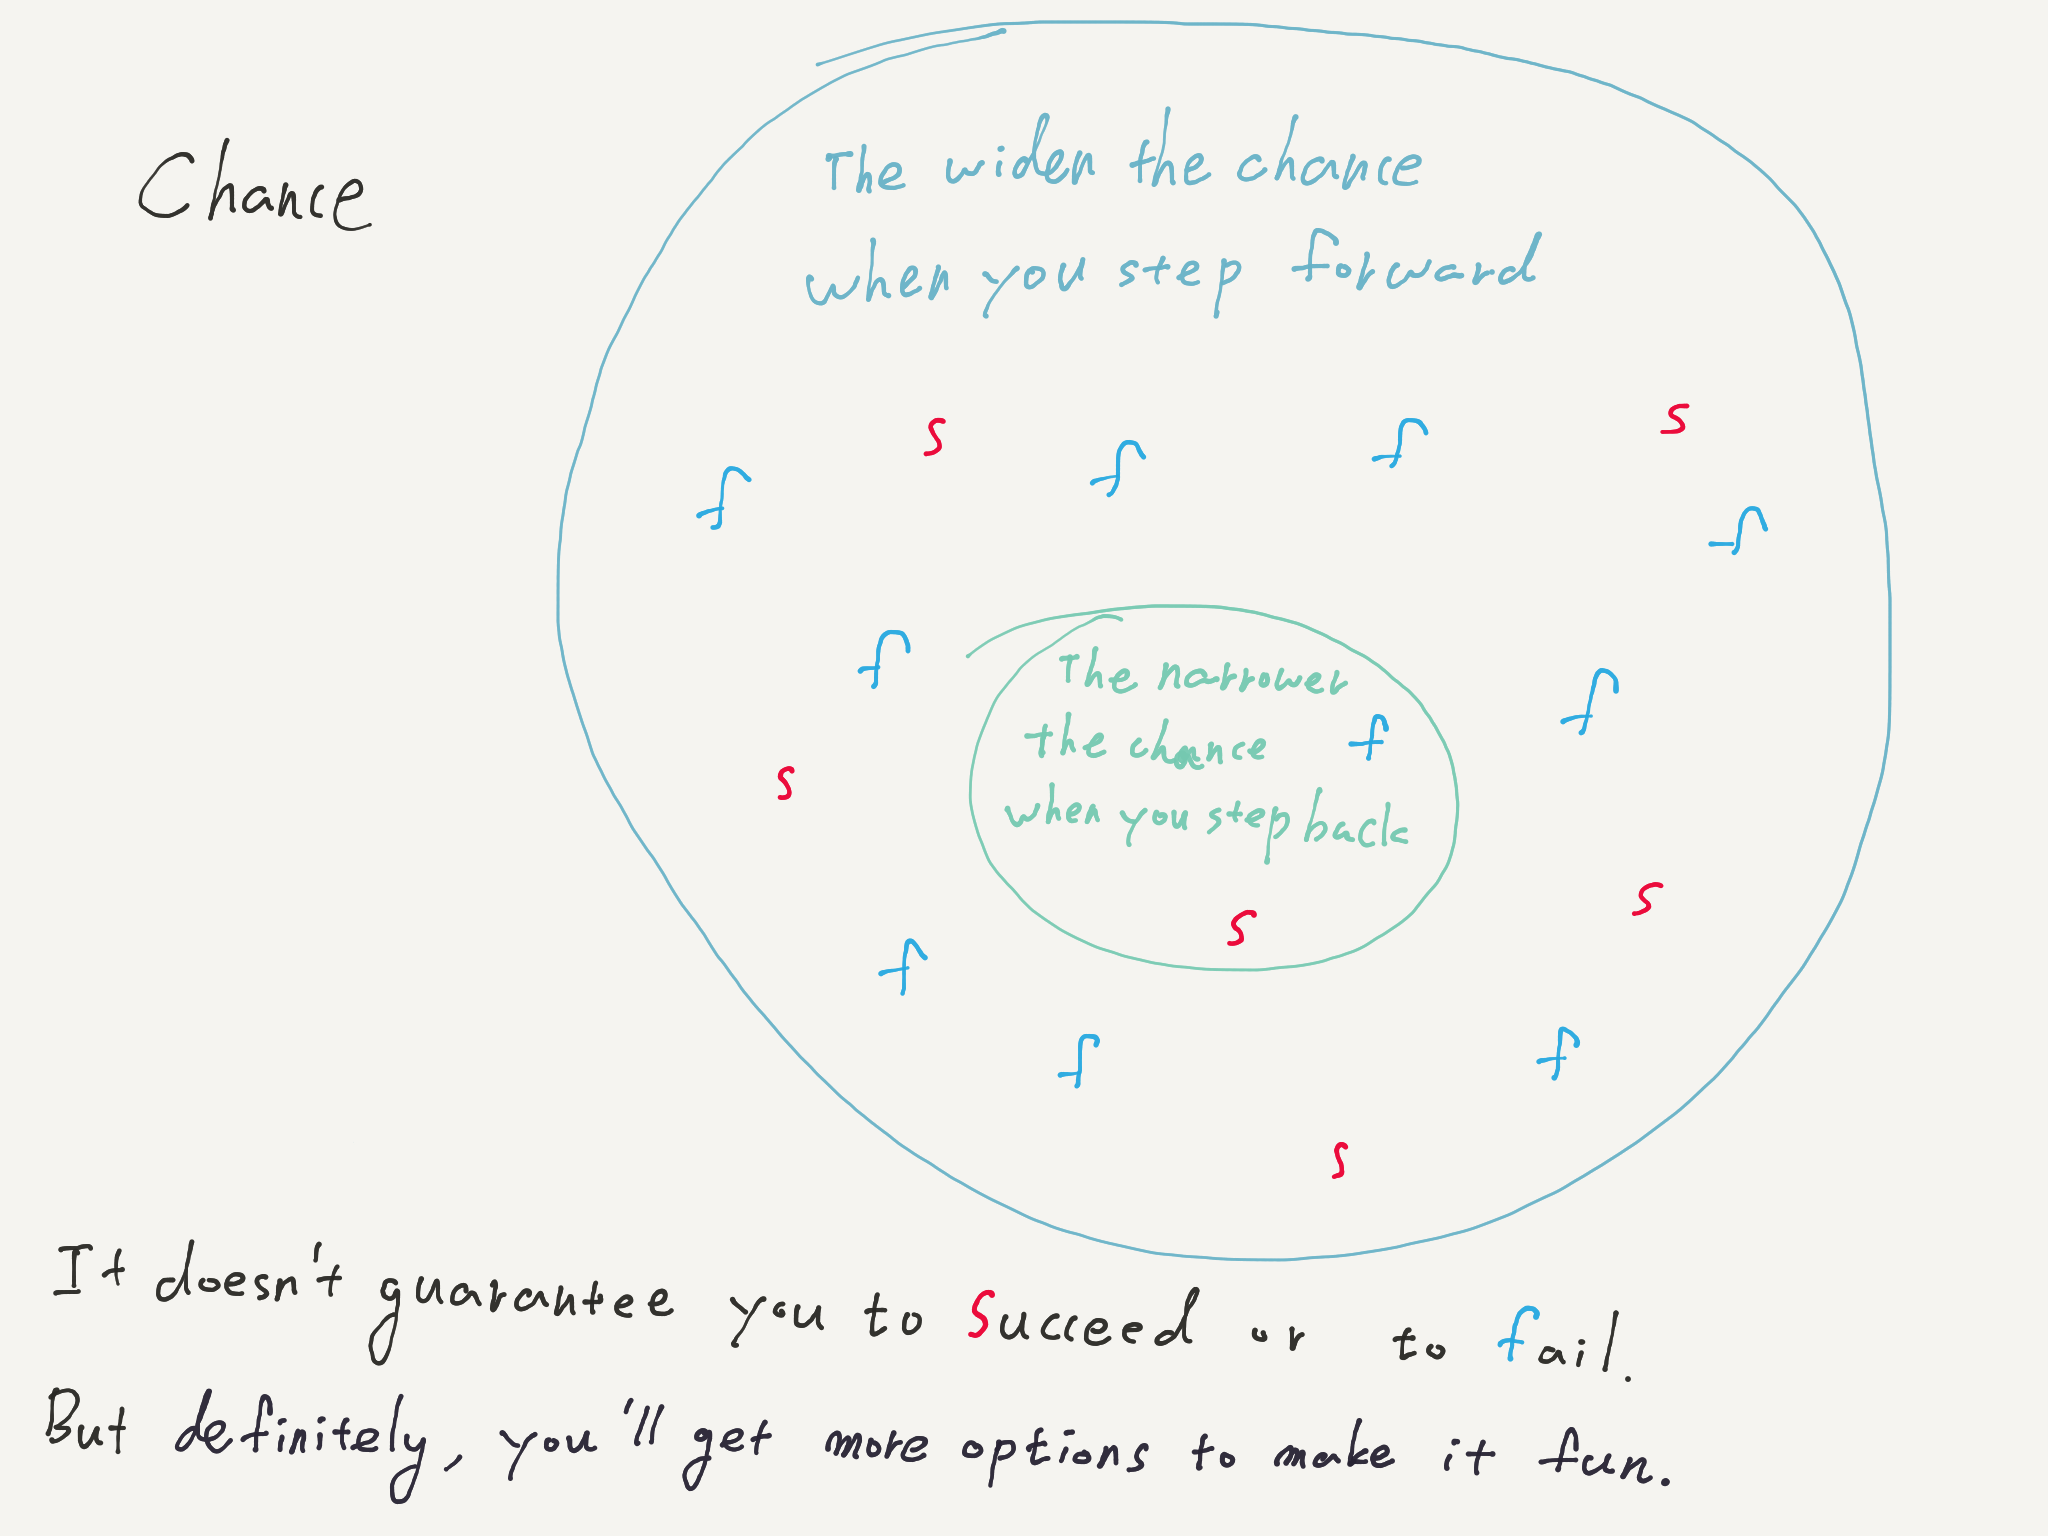 Chance
The widen the chance
when you step forward
s
s
f
f
f
f
f
The narrower
the chance
f
when you step back
f
s
s
s
f
f
f
s
It doesn't guarantee you to succeed or to fail.
But definitely, you'll get more options to make it fun.